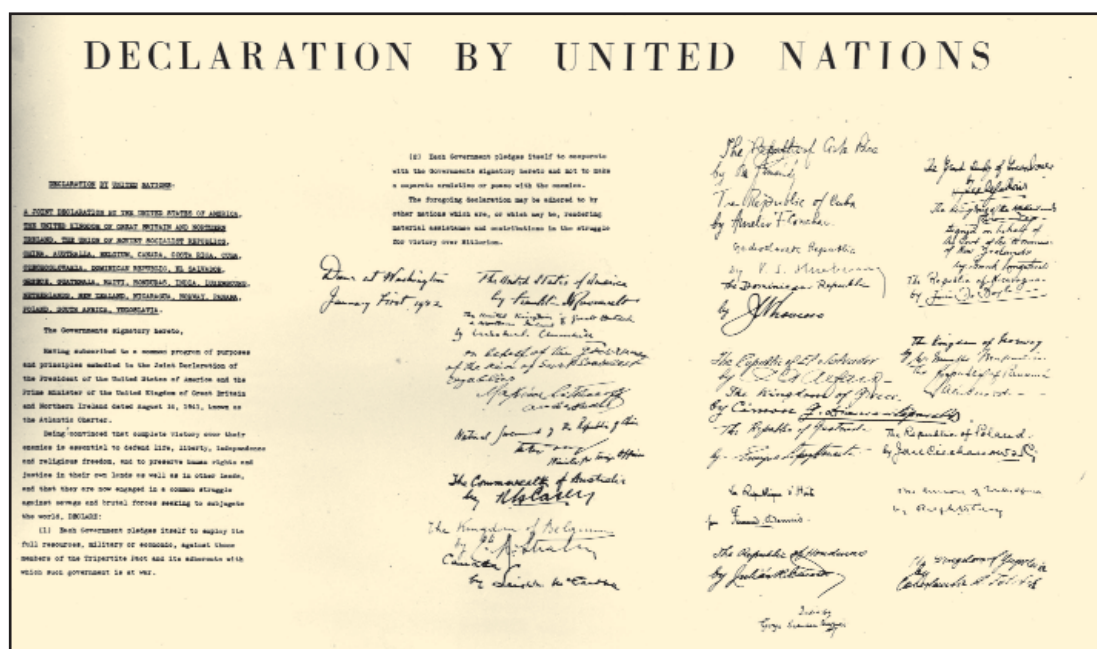 DECLARATION BY UNITED NATIONS
DECLARATION BY UNITED NATIONS.
A JOINT DECLARATION BY THE UNITED STATES OF AMERICA,
THE UNITED KINGDOM OF GREAT BRITAIN AND NORTHERN
IRELAND, THE UNION OF SOVIET SOCIALIST REPUBLICS,
CHINA, AUSTRALIA, BELGIUM, CANADA, COSTA RICA, CUBA,
CZECHOSLOVAKIA, DOMINICAN REPUBLIC, EL SALVADOR,
GREECE, GUATEMALA, HAITI, HONDURAS, INDIA, LUXEMBOURG,
NETHERLANDS, NEW ZEALAND, NICARAGUA, NORWAY, PANAMA,
POLAND, SOUTH AFRICA, YUGOSLAVIA.
The Governments signatory hereto,
Having subscribed to a common program of purposes
and principles embodied in the Joint Declaration of
the President of the United States of America and the
Prime Minister of the United Kingdom of Great Britain
and Northern Ireland dated August 14, 1941, known as
the Atlantic Charter.
Being convinced that complete victory over their
enemies is essential to defend life, liberty, independence
and religious freedom, and to preserve human rights and
justice in their own lands as well as in other lands,
and that they are now engaged in a common struggle
against savage and brutal forces seeking to subjugate
the world, DECLARE:
(1) Each Government pledges itself to employ its
full resources, military or economic, against those
members of the Tripartite Pact and its adherents with
which such government is at war.
(2) Each Government pledges itself to cooperate
with the Governments signatory hereto and not to make
a separate armistice or peace with the enemies.
The foregoing declaration may be adhered to by
other nations which are, or which may be, rendering
material assistance and contributions in the struggle
for victory over Hitlerism.
Done at Washington
January First 1942
The United States of America
by Franklin D Roosevelt
The United Kingdom of Great Britain
& Northern Ireland
by Winston Churchill
On behalf of the Government
of the Union of Soviet Socialist
Republics
Maxim Litvinoff
Ambassador
National Government of the Republic of China
Minister for Foreign Affairs
The Commonwealth of Australia
by R G Casey
The Kingdom of Belgium
by
Canada
by Leighton McCarthy
The Republic of Costa Rica
by
The Republic of Cuba
by Aurelio F. Concheso
Republic
by V. S. Hurban
The Dominican Republic
by
The Republic of El Salvador
by
The Kingdom of Greece
by Cimon
The Republic of Guatemala
by
La Republique d'Haiti
The Republic of Honduras
by Julián R. Cáceres
India by
The Grand Duchy of Luxembourg
by
The Kingdom of the Netherlands
Signed on behalf of
the Govt of the Dominion
of New Zealand
by Frank Langstone
The Republic of Nicaragua
by
The Kingdom of Norway
by
The Republic of Panamá
The Republic of Poland
by Jan Ciechanowski
by
The Kingdom of Yugoslavia
by